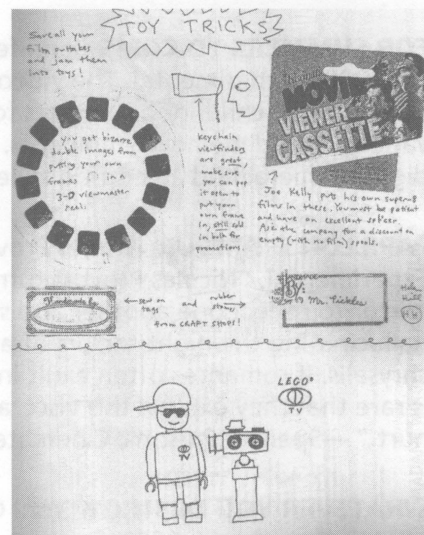 TOY TRICKS
Save all your
film outtakes
and jam them
into toys!
You get bizarre
double images from
putting your own
frames in a
3-D viewmaster
reel!
keychain
viewfinders
are great,
make sure
you can pop
it open to
put your
own frame
in, still sold
in bulk for
promotions.
MOVIE
VIEWER
CASSETTE
Joe Kelly puts his own super 8
films in these. You must be patient
and have an excellent splicer.
Ask the company for a discount on
empty (with no film) spools.
Handmade By
sew on
tags
and
rubber
stamp
from CRAFT SHOPS!
BY:
Mr. Tickles
Helen
Hill
LEGO®
TV
TV